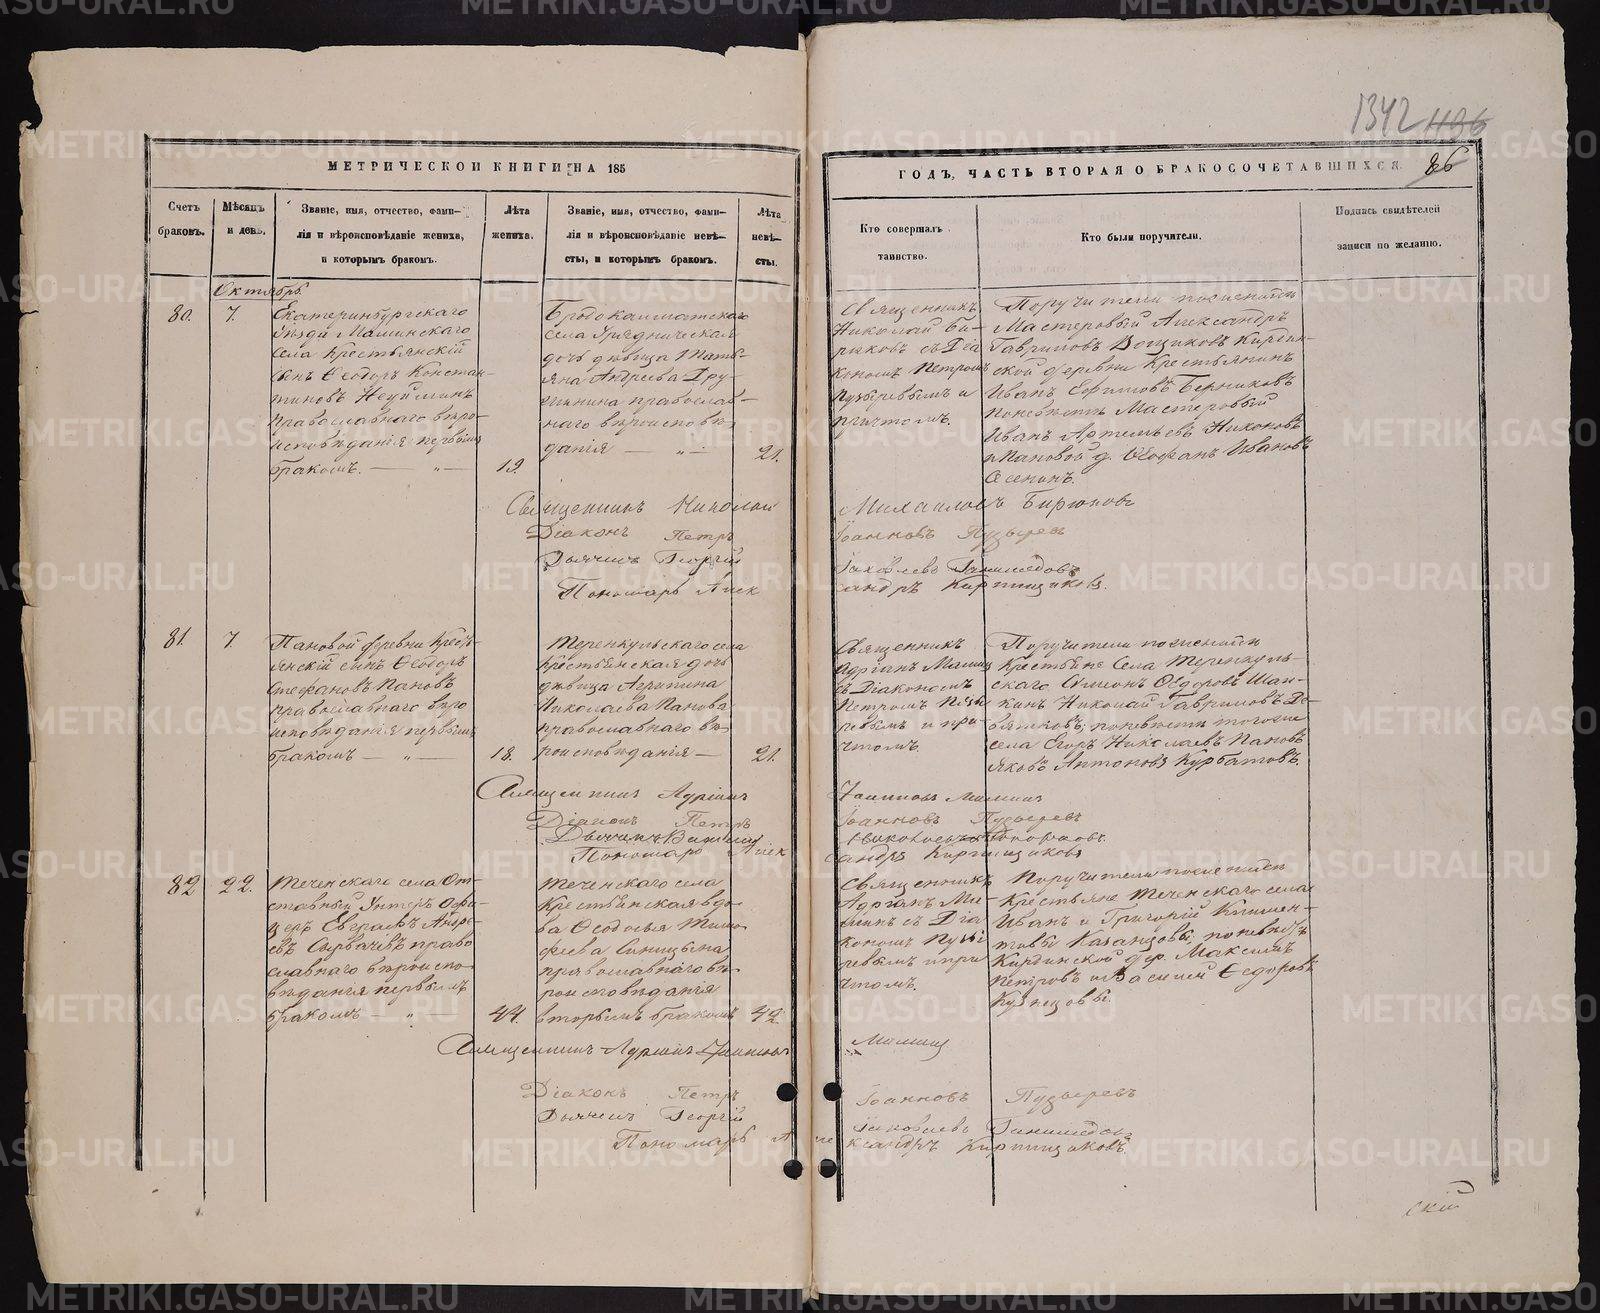 1342 1196
МЕТРИЧЕСКОЙ КНИГИ НА 185
ГОДЪ, ЧАСТЬ ВТОРАЯ О БРАКОСОЧЕТАВШИХСЯ.
86
Счетъ
браковъ.
Мѣсяцъ
и день.
Званіе, имя, отчество, фами-
лія и вѣроисповѣданіе жениха,
и которымъ бракомъ.
Лѣта
жениха.
Званіе, имя, отчество, фами-
лія и вѣроисповѣданіе невѣ-
сты, и которымъ бракомъ.
Лѣта
невѣ-
сты.
Кто совершалъ
таинство.
Кто были поручители.
Подпись свидѣтелей
записи по желанію.
Октябрь
80.
7.
Екатеринбургскаго
уѣзда Маминскаго
села Крестьянскій
сынъ Ѳеодоръ Констан-
тиновъ Неуйминъ
православнаго вѣро-
исповѣданія первымъ
бракомъ. — „ —
19.
Бродокалматскаго
села Урядническая
дочь дѣвица Тать-
яна Андреева Дру-
жинина православ-
наго вѣроисповѣ-
данія — „ —
21.
Священникъ
Николай Би-
рюковъ съ Діа
кономъ Петромъ
Пузыревымъ и
причтомъ.
Поручители по женихѣ
Мастеровый Александръ
Гавриловъ Кирдин-
ской деревни Крестьянинъ
Иванъ Ефимовъ Берниковъ
по невѣстѣ Мастеровый
Иванъ Артемьевъ Никоновъ
и Пановой д. Ѳеофанъ Ивановъ
Священникъ Николай Михайловъ Бирюковъ
Діаконъ Петръ Іоанновъ Пузыревъ
Дьячекъ Георгій Іаковлевъ
Пономарь Александръ Кирпищиковъ.
81.
7.
Пановой деревни Кресть-
янскій сынъ Ѳеодоръ
Стефановъ Пановъ
православнаго вѣро
исповѣданія первымъ
бракомъ — „ —
18.
Теренкульскаго села
крестьянская дочь
дѣвица Агрипина
Николаева Панова
православнаго вѣ-
роисповѣданія —
21.
Священникъ
Адріанъ Маминъ
съ Діакономъ
Петромъ Пузы
ревымъ и при
чтомъ.
Поручители по женихѣ
Крестьяне Села Теренкуль-
скаго Симеонъ Ѳедоровъ
Николай Гавриловъ Де-
вятковъ; по невѣстѣ тогоже
села Егоръ Николаевъ Пановъ
Яковъ Антоновъ Курбатовъ.
Священникъ Адріанъ Іоанновъ Маминъ
Діаконъ Петръ Іоанновъ Пузыревъ
Дьячекъ
Пономарь Александръ Кирпищиковъ
82
22.
Теченскаго села От-
ставный Унтеръ Офи-
церъ Евграфъ Андре-
евъ Сырвачевъ право
славнаго вѣроиспо-
вѣданія первымъ
бракомъ — „ —
44.
Теченскаго села
Крестьянская вдо-
ва Ѳеодосья Тимо-
феева Синицына
православнаго вѣ-
роисповѣданія
вторымъ бракомъ
42.
Священникъ
Адріанъ Ма-
минъ съ Діа
кономъ Пузы
ревымъ и при
чтомъ.
Поручители по женихѣ
Крестьяне Теченскаго села
Иванъ и Григорій Климен-
товы Казанцовы; по невѣстѣ
Кирдинской дер. Максимъ
Петровъ и Василій Ѳедоровъ
Кузнецовы.
Священникъ Адріанъ Іоанновъ Маминъ
Діаконъ Петръ Іоанновъ Пузыревъ
Дьячекъ Георгій Іаковлевъ
Пономарь Александръ Кирпищиковъ.
скій
METRIKI.GASO-URAL.RU